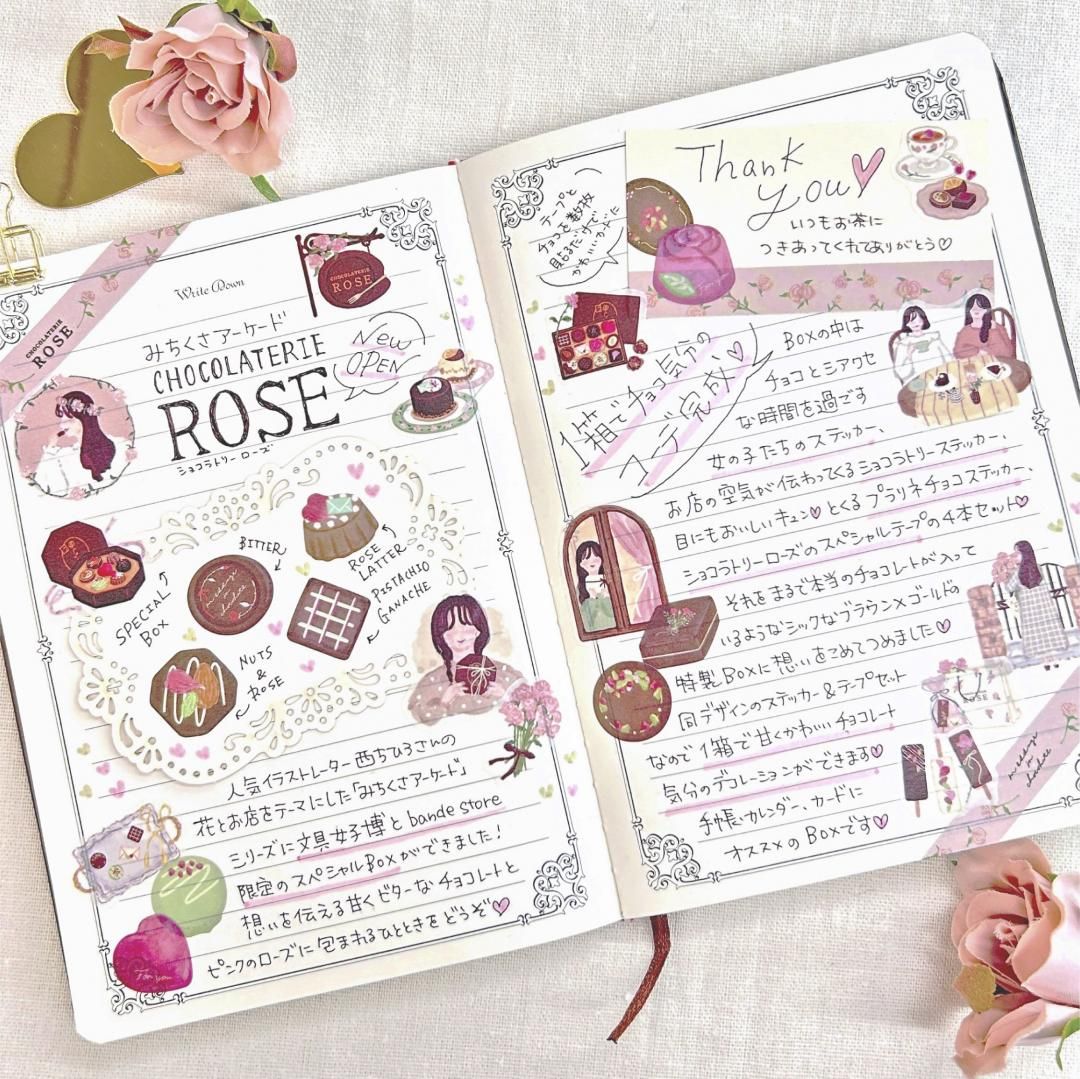 Write Down
CHOCOLATERIE
ROSE
CHOCOLATERIE
ROSE
みちくさアーケード
CHOCOLATERIE
ROSE
ショコラトリー ローズ
New
OPEN
BITTER
ROSE
LATTER
PISTACHIO
GANACHE
SPECIAL
BOX
NUTS
&
ROSE
人気イラストレーター西ちひろさんの
花とお店をテーマにした「みちくさアーケード」
シリーズに文具女子博とbande store
限定のスペシャルBoxができました!
想いを伝える甘くビターなチョコレートと
ピンクのローズに包まれるひとときをどうぞ♡
For you
テープと
チョコを数枚
貼るだけで
かわいいカードに
Thank
you♡
いつもお茶に
つきあってくれてありがとう♡
1箱でチョコ気分の
コーデ完成、♡
Boxの中は
チョコとシアワセ
な時間を過ごす
女の子たちのステッカー、
お店の空気が伝わってくるショコラトリーステッカー、
目にもおいしいキュン♡とくるプラリネチョコステッカー、
ショコラトリーローズのスペシャルテープの4本セット♡
それをまるで本当のチョコレートが入って
いるようなシックなブラウン×ゴールドの
特製Boxに想いをこめてつめました♡
同デザインのステッカー&テープセット
なので1箱で甘くかわいいチョコレート
気分のデコレーションができます♡
手帳、カレンダー、カードに
オススメのBoxです♡
ROSE
message
in
chocolate